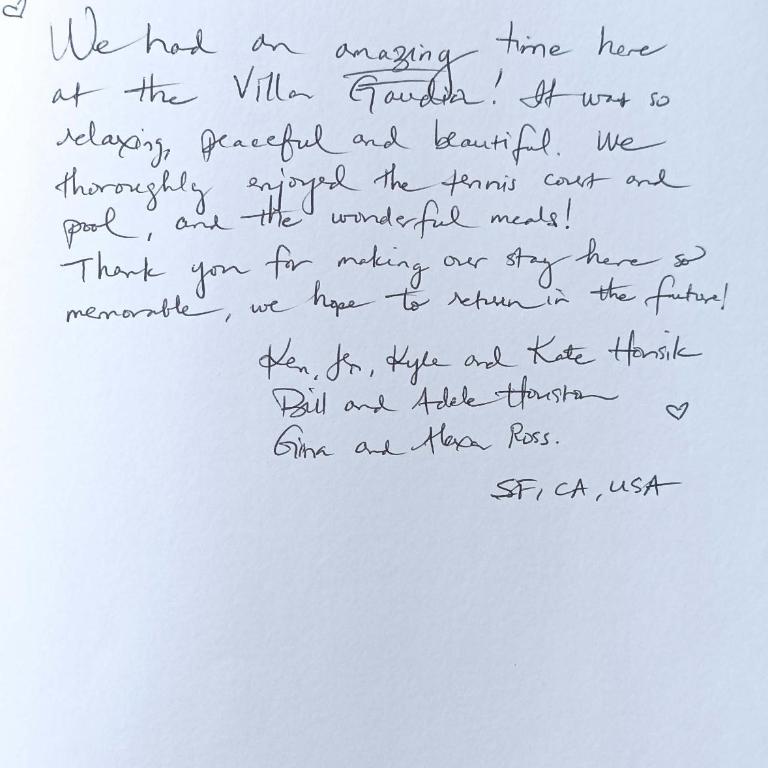 We had an amazing time here
at the Villa Gaudia! It was so
relaxing, peaceful and beautiful. We
thoroughly enjoyed the tennis court and
pool, and the wonderful meals!
Thank you for making our stay here so
memorable, we hope to return in the future!
Ken, Jen, Kyle and Kate Honsik
Bill and Adele Houston
Gina and Alexa Ross.
SF, CA, USA